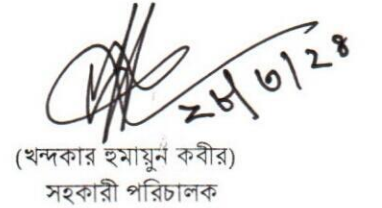 ২৮/৩/২৪
(খন্দকার হুমায়ুন কবীর)
সহকারী পরিচালক